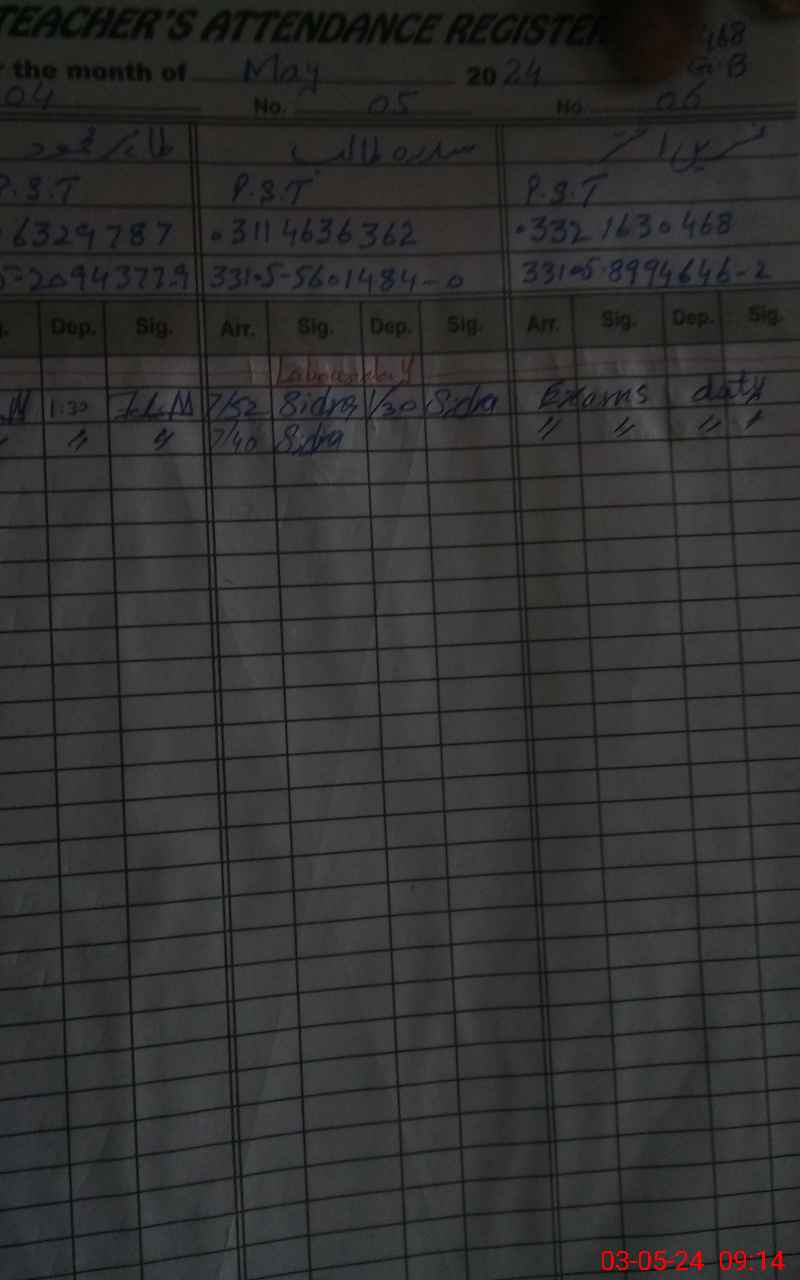 TEACHER'S ATTENDANCE REGISTER
468
the month of May 2024 G.B
04 No. 05 No. 06
سدرہ طالب
P.S.T P.S.T P.S.T
6329787 0311 4636362 0332 1630468
2094377.9 33105-5601484-0 33105-8994646-2
Dep. Sig. Arr. Sig. Dep. Sig. Arr. Sig. Dep. Sig.
Labour day
1:30 7/52 Sidra 1/30 Sidra Exams duty
〃 〃 7/40 Sidra 〃 〃 〃 〃
03-05-24 09:14